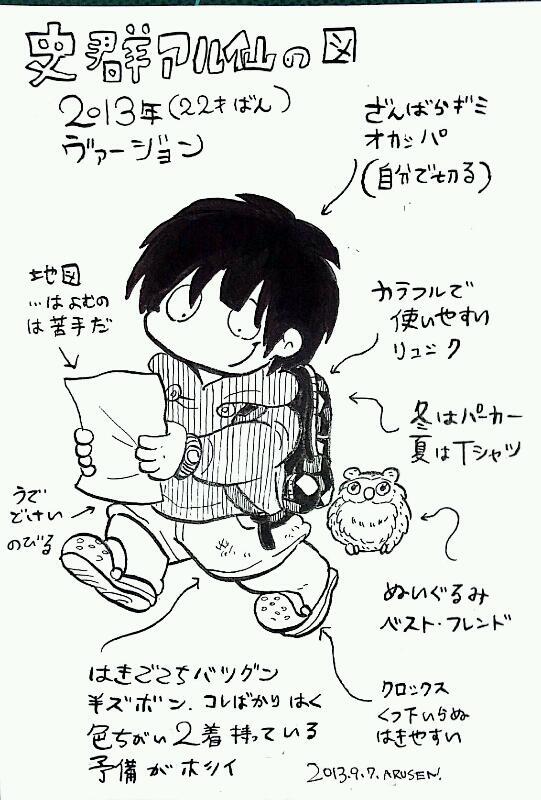 史群アル仙の図
2013年(22才ばん)
ヴァージョン
ざんばらギミ
オカッパ
(自分で切る)
地図
…はよむの
は苦手だ
カラフルで
使いやすい
リュック
冬はパーカー
夏はTシャツ
うで
どけい
のびる
ぬいぐるみ
ベスト・フレンド
はきごこちバツグン
半ズボン.コレばかりはく
色ちがい2着持っている
予備がホシイ
クロックス
くつ下いらぬ
はきやすい
2013.9.7.ARUSEN.